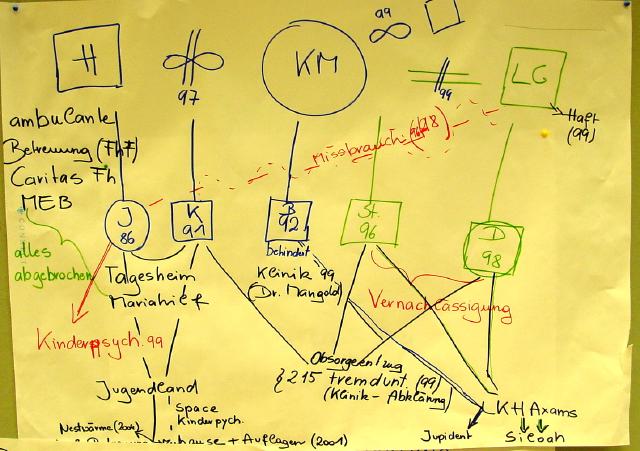 99
H
KM
LG
97
99
Haft
(99)
ambulante
Betreuung (FhF)
Caritas Fh
MEB
Missbrauch (98)
J
86
K
91
B
92
St.
96
D
98
behindert
alles
abgebrochen
Tagesheim
Mariahilf
Klinik 99
(Dr. Mangold)
Vernachlässigung
Kinderpsych. 99
Absorgeentzug
§ 215 fremdunt. (99)
(Klinik - Abklärung)
Jugendland
Space
Kinderpsych.
LKH Axams
Nestwärme (2001)
Jupident
Siloah
hause + Auflagen (2001)